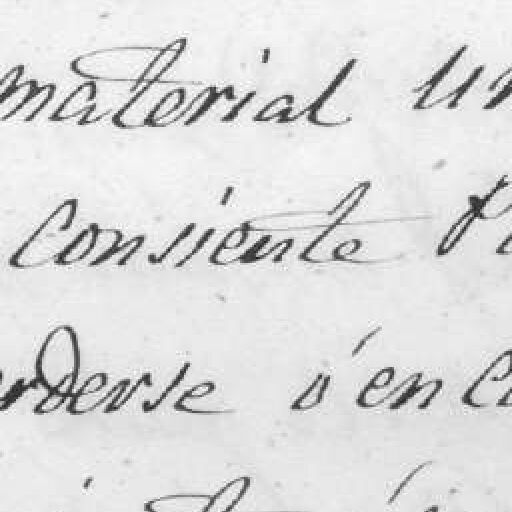 material un
consiente
rderse ó en c